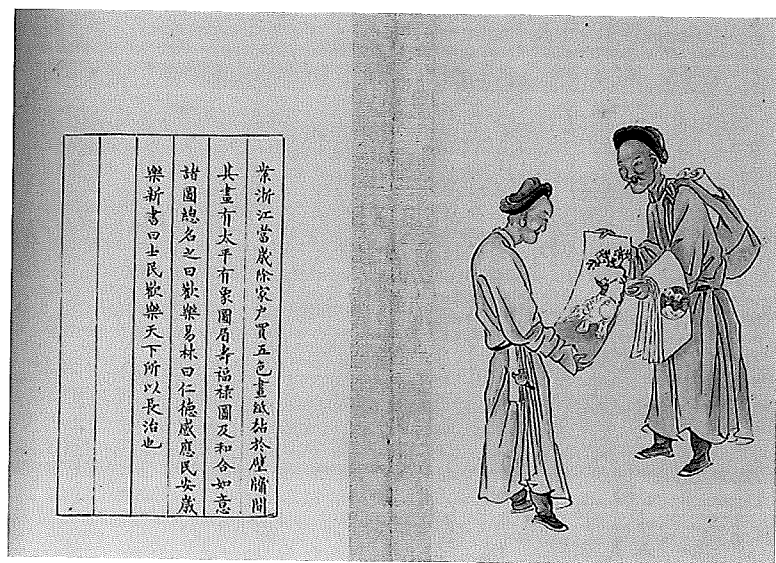 業浙江當歲除家户買五色畫紙黏於壁牖間
其畫有太平有象圖眉壽福禄圖及和合如意
諸圖總名之曰歡樂易林曰仁德感應民安歲
樂新書曰士民歡樂天下所以長治也